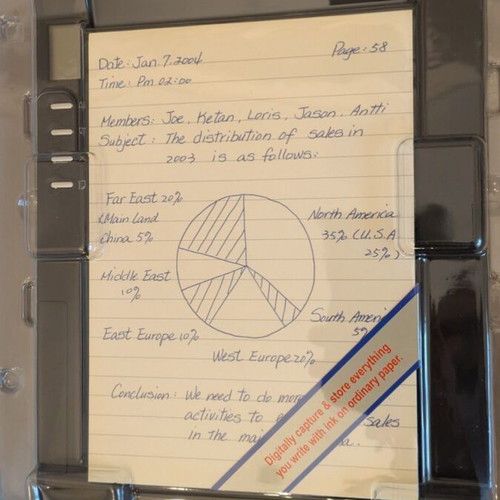 Date: Jan. 7, 2004
Page: 58
Time: Pm 02:00
Members: Joe, Ketan, Loris, Jason, Antti
Subject: The distribution of sales in
2003 is as follows:
Far East 20%
(Main Land
China 5%
North America
35% (U.S.A
25%)
Middle East
10%
South Ameri
5%
East Europe 10%
West Europe 20%
Conclusion: We need to do mor
activities to sales
in the mai a.
Digitally capture & store everything
you write with ink on ordinary paper.